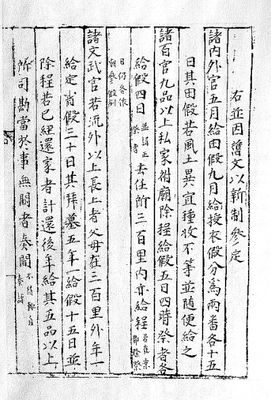 右並因舊文以新制參定
諸內外官五月給田假九月給授衣假分為兩番各十五
日其田假若風土異宜種收不等並隨便給之
諸百官九品以上私家祔廟除程給假五日四時祭者各
給假四日並謂主祭者去任所三百里內亦給程若在京都除祭
日仍各依朝參假例
諸文武官若流外以上長上者父母在三百里外年一
給定省假三十日其拜墓五年一給假十五日並
除程若已經還家者計還後年給其五品以上
所司勘當於事無闕者奏聞不得輒自奏請